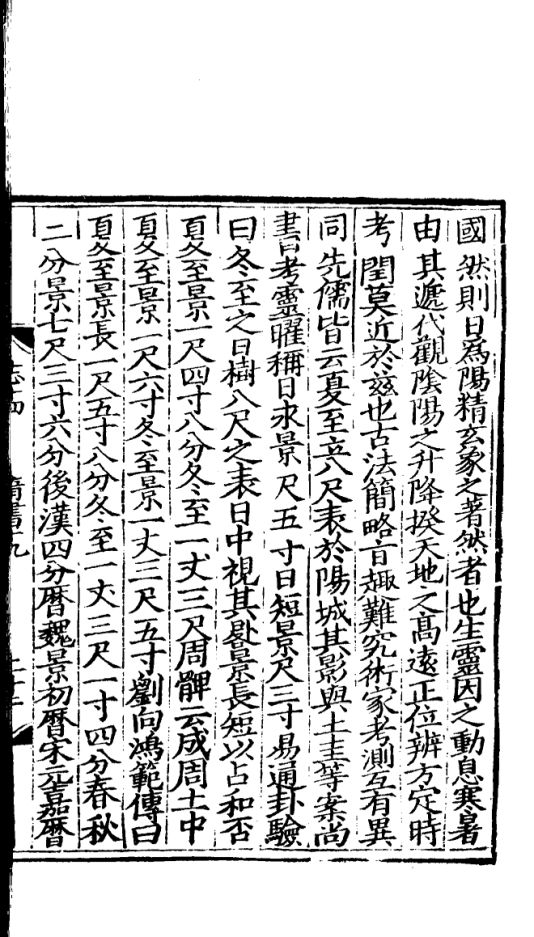 國然則日爲陽精玄象之著然者也生靈因之動息寒暑
由其遞代觀陰陽之升降揆天地之高遠正位辨方定時
考閏莫近於兹也古法簡略旨趣難究術家考測互有異
同先儒皆云夏至立八尺表於陽城其影與土圭等案尚
書考靈曜稱日永景尺五寸日短景尺三寸易通卦驗
曰冬至之日樹八尺之表日中視其晷景長短以占和否
夏至景一尺四寸八分冬至一丈三尺周髀云成周土中
夏至景一尺六寸冬至景一丈三尺五寸劉向鴻範傳曰
夏至景長一尺五寸八分冬至一丈三尺一寸四分春秋
二分景七尺三寸六分後漢四分暦魏景初暦宋元嘉暦